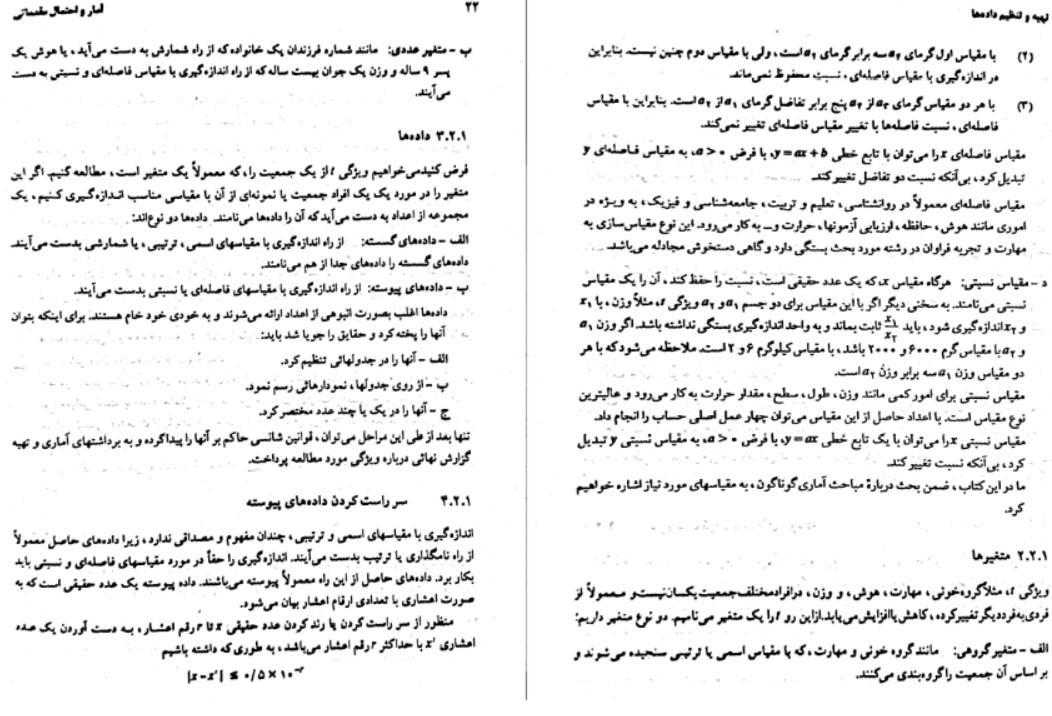 تهیه و تنظیم داده‌ها
(۲) با مقیاس اول گرمای a₂ سه برابر گرمای a₁ است، ولی با مقیاس دوم چنین نیست. بنابراین
در اندازه‌گیری با مقیاس فاصله‌ای، نسبت محفوظ نمی‌ماند.
(۳) با هر دو مقیاس گرمای a₃ از a₲ پنج برابر تفاضل گرمای a₁ از a₂ است. بنابراین با مقیاس
فاصله‌ای، نسبت فاصله‌ها با تغییر مقیاس فاصله‌ای تغییر نمی‌کند.
مقیاس فاصله‌ای x را می‌توان با تابع خطی y=ax+b، با فرض a>۰، به مقیاس فاصله‌ای y
تبدیل کرد، بی‌آنکه نسبت دو تفاضل تغییر کند.
مقیاس فاصله‌ای معمولاً در روانشناسی، تعلیم و تربیت، جامعه‌شناسی و فیزیک، به ویژه در
اموری مانند هوش، حافظه، ارزیابی آزمونها، حرارت و... به کار می‌رود. این نوع مقیاس‌سازی به
مهارت و تجربه فراوان در رشته مورد بحث بستگی دارد و گاهی دستخوش مجادله می‌باشد.
د - مقیاس نسبتی: هرگاه مقیاس x، که یک عدد حقیقی است، نسبت را حفظ کند، آن را یک مقیاس
نسبتی می‌نامند. به سخنی دیگر اگر با این مقیاس برای دو جسم a₁ و a₂ ویژگی t، مثلاً وزن، با x₁
و x₂ اندازه‌گیری شود، باید x₁/x₂ ثابت بماند و به واحد اندازه‌گیری بستگی نداشته باشد. اگر وزن a₁
و a₂ با مقیاس گرم ۶۰۰۰ و ۲۰۰۰ باشد، با مقیاس کیلوگرم ۶ و ۲ است. ملاحظه می‌شود که با هر
دو مقیاس وزن a₁ سه برابر وزن a₂ است.
مقیاس نسبتی برای امور کمی مانند وزن، طول، سطح، مقدار حرارت به کار می‌رود و عالیترین
نوع مقیاس است. با اعداد حاصل از این مقیاس می‌توان چهار عمل اصلی حساب را انجام داد.
مقیاس نسبتی x را می‌توان با یک تابع خطی y=ax، با فرض a>۰، به مقیاس نسبتی y تبدیل
کرد، بی‌آنکه نسبت تغییر کند.
ما در این کتاب، ضمن بحث دربارهٔ مباحث آماری گوناگون، به مقیاسهای مورد نیاز اشاره خواهیم
کرد.
۲.۲.۱ متغیرها
ویژگی t، مثلاً گروه خونی، مهارت، هوش، و وزن، در افراد مختلف جمعیت یکسان نیست و معمولاً از
فردی به فرد دیگر تغییر کرده، کاهش یا افزایش می‌یابد. از این رو t را یک متغیر می‌نامیم. دو نوع متغیر داریم:
الف - متغیر گروهی: مانند گروه خونی و مهارت، که با مقیاس اسمی یا ترتیبی سنجیده می‌شوند و
بر اساس آن جمعیت را گروه‌بندی می‌کنند.
۲۲ آمار و احتمال مقدماتی
ب - متغیر عددی: مانند شماره فرزندان یک خانواده که از راه شمارش به دست می‌آید، یا هوش یک
پسر ۹ ساله و وزن یک جوان بیست ساله که از راه اندازه‌گیری با مقیاس فاصله‌ای و نسبتی به دست
می‌آیند.
۳.۲.۱ داده‌ها
فرض کنید می‌خواهیم ویژگی t از یک جمعیت را، که معمولاً یک متغیر است، مطالعه کنیم. اگر این
متغیر را در مورد یک یک افراد جمعیت یا نمونه‌ای از آن با مقیاسی مناسب اندازه‌گیری کنیم، یک
مجموعه از اعداد به دست می‌آید که آن را داده‌ها می‌نامند. داده‌ها دو نوع‌اند:
الف - داده‌های گسسته: از راه اندازه‌گیری با مقیاسهای اسمی، ترتیبی، یا شمارشی بدست می‌آیند.
داده‌های گسسته را داده‌های جدا از هم می‌نامند.
ب - داده‌های پیوسته: از راه اندازه‌گیری با مقیاسهای فاصله‌ای یا نسبتی بدست می‌آیند.
داده‌ها اغلب بصورت انبوهی از اعداد ارائه می‌شوند و به خودی خود خام هستند. برای اینکه بتوان
آنها را پخته کرد و حقایق را جویا شد باید:
الف - آنها را در جدولهائی تنظیم کرد.
ب - از روی جدولها، نمودارهائی رسم نمود.
ج - آنها را در یک یا چند عدد مختصر کرد.
تنها بعد از طی این مراحل می‌توان، قوانین شانسی حاکم بر آنها را پیدا کرده و به برداشتهای آماری و تهیه
گزارش نهائی درباره ویژگی مورد مطالعه پرداخت.
۴.۲.۱ سر راست کردن داده‌های پیوسته
اندازه‌گیری با مقیاسهای اسمی و ترتیبی، چندان مفهوم و مصداقی ندارد، زیرا داده‌های حاصل معمولاً
از راه نامگذاری یا ترتیب بدست می‌آیند. اندازه‌گیری را حقاً در مورد مقیاسهای فاصله‌ای و نسبتی باید
بکار برد. داده‌های حاصل از این راه معمولاً پیوسته می‌باشند. داده پیوسته یک عدد حقیقی است که به
صورت اعشاری با تعدادی ارقام اعشار بیان می‌شود.
منظور از سر راست کردن یا رند کردن عدد حقیقی x تا r رقم اعشار، به دست آوردن یک عدد
اعشاری x' با حداکثر r رقم اعشار می‌باشد، به طوری که داشته باشیم
|x-x'| ≤ ۰/۵×۱۰⁻ʳ